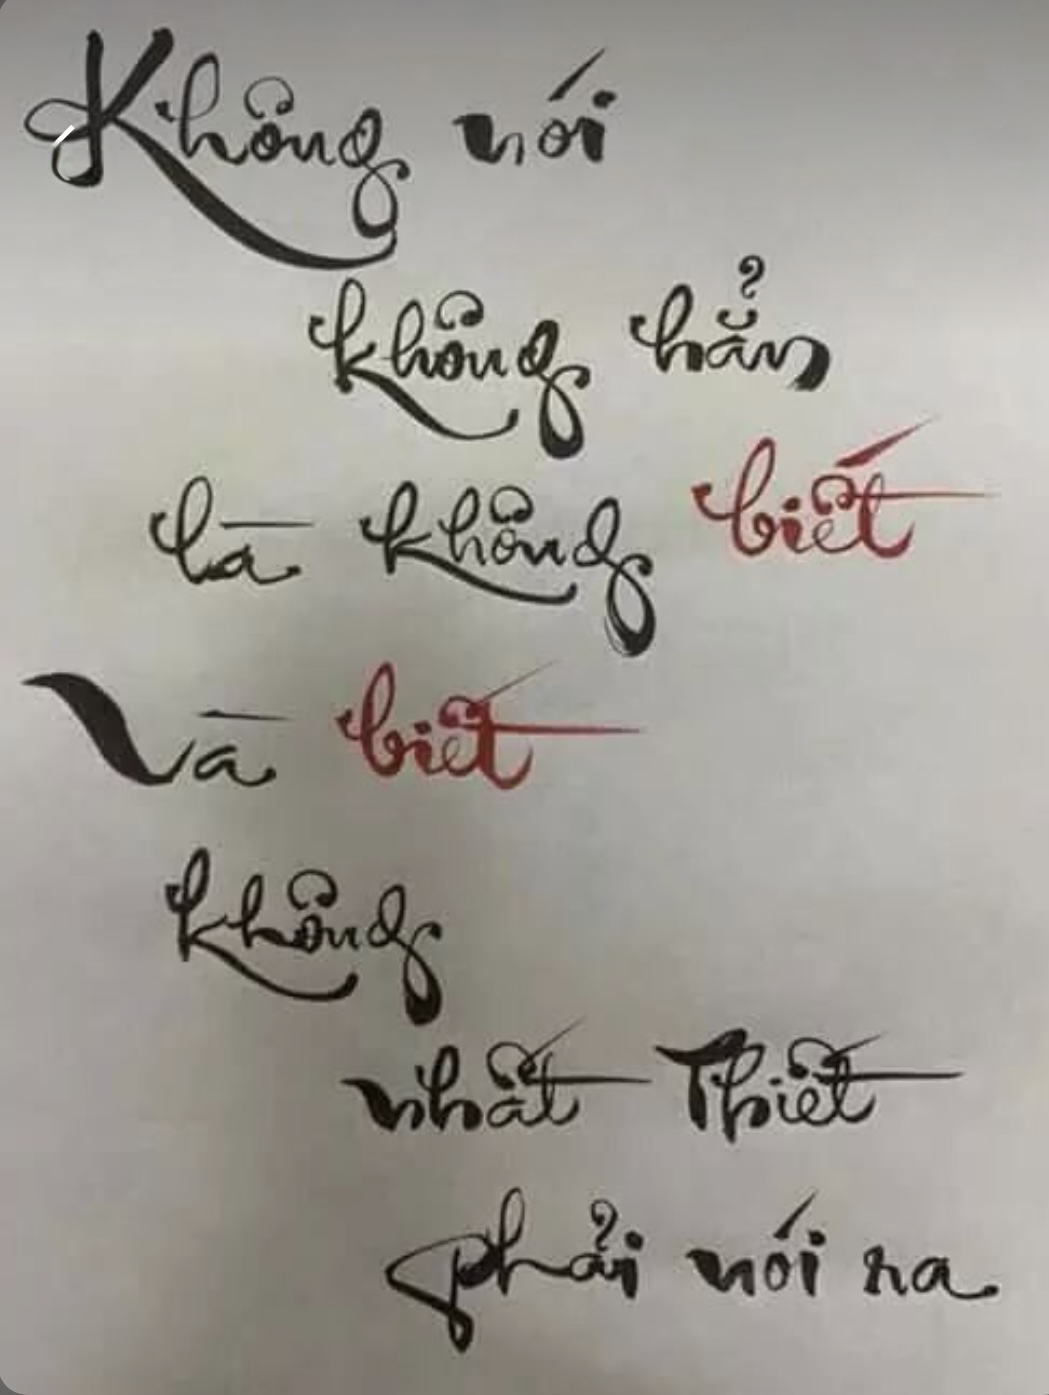 Không nói
không hẳn
là không biết
Và biết
không
nhất Thiết
phải nói ra